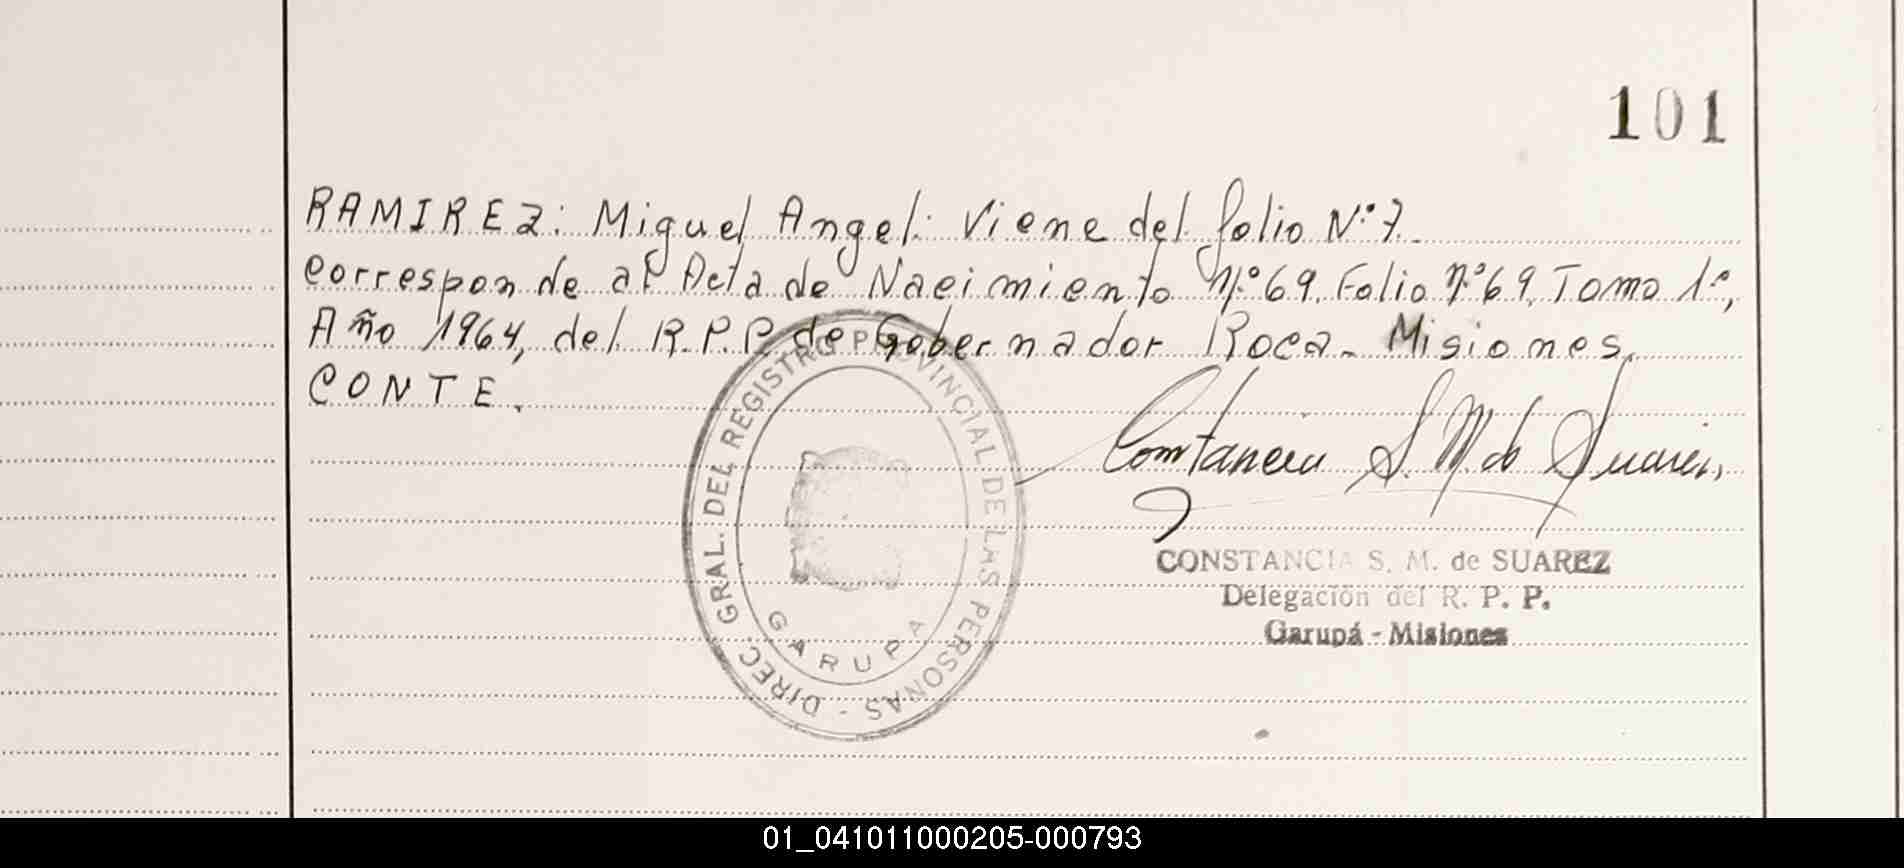 101
RAMIREZ: Miguel Angel: Viene del folio N°7.
Corresponde al Acta de Nacimiento N°69. Folio N°69. Tomo 1°,
Año 1964, del R.P.P. de Gobernador Roca - Misiones,
CONTE.
Constancia S. M. de Suarez,
CONSTANCIA S. M. de SUAREZ
Delegación del R. P. P.
Garupá - Misiones
DIREC. GRAL. DEL REGISTRO PROVINCIAL DE LAS PERSONAS -
GARUPA
01_041011000205-000793